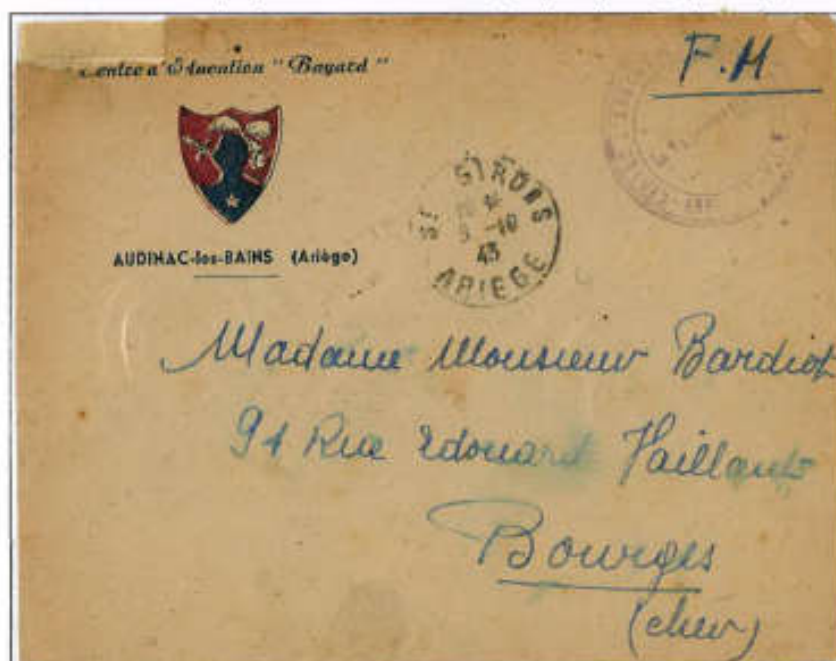 Centre d'Education "Bayard"
F.M
AUDINAC-les-BAINS (Ariège)
ST GIRONS
9 -10
43
ARIEGE
Madame Monsieur Bardiot
91 Rue Edouard Vaillant
Bourges
(cher)